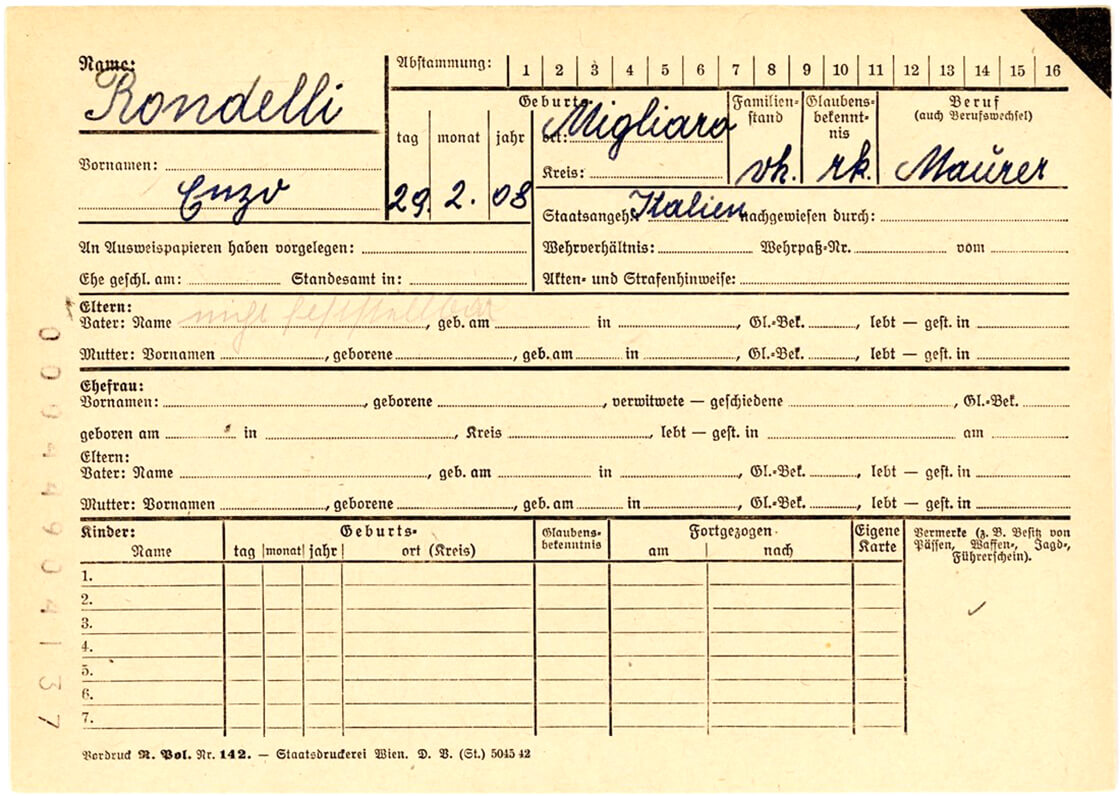 Name: Rondelli
Abstammung: 1 2 3 4 5 6 7 8 9 10 11 12 13 14 15 16
Vornamen: Enzo
Geburts-
tag monat jahr ort: Migliaro
29. 2. 08
Kreis:
Familien-
stand
vh.
Glaubens-
bekennt-
nis
rk.
Beruf
(auch Berufswechsel)
Maurer
Staatsangeh. Italien nachgewiesen durch:
An Ausweispapieren haben vorgelegen:
Wehrverhältnis: Wehrpaß-Nr. vom
Ehe geschl. am: Standesamt in:
Akten- und Strafenhinweise:
Eltern:
Vater: Name nicht feststellbar, geb. am in, Gl.-Bek., lebt — gest. in
Mutter: Vornamen, geborene, geb. am in, Gl.-Bek., lebt — gest. in
Ehefrau:
Vornamen:, geborene, verwitwete — geschiedene, Gl.-Bek.
geboren am in, Kreis, lebt — gest. in am
Eltern:
Vater: Name, geb. am in, Gl.-Bek., lebt — gest. in
Mutter: Vornamen, geborene, geb. am in, Gl.-Bek., lebt — gest. in
Kinder:
Name
Geburts-
tag monat jahr ort (Kreis)
Glaubens-
bekenntnis
Fortgezogen
am nach
Eigene
Karte
Vermerke (z. B. Besitz von
Pässen, Waffen-, Jagd-,
Führerschein).
1.
2.
3.
4.
5.
6.
7.
Vordruck R. Pol. Nr. 142. — Staatsdruckerei Wien. D. V. (St.) 5045 42
0044904137